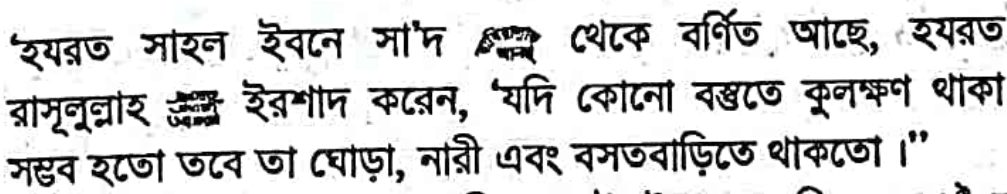 ‘হযরত সাহল ইবনে সা'দ থেকে বর্ণিত আছে, হযরত
রাসূলুল্লাহ ﷺ ইরশাদ করেন, ‘যদি কোনো বস্তুতে কুলক্ষণ থাকা
সম্ভব হতো তবে তা ঘোড়া, নারী এবং বসতবাড়িতে থাকতো।”